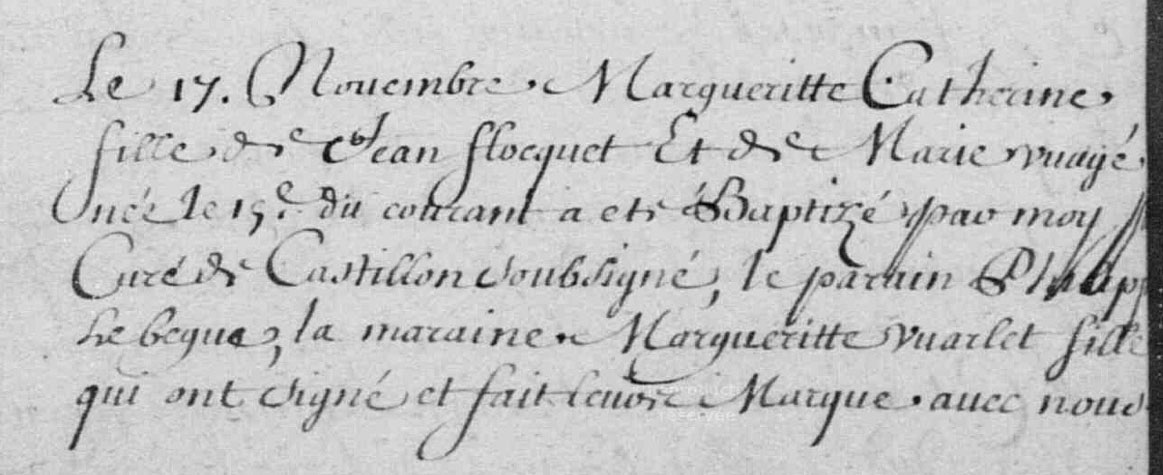 Le 17. Novembre Margueritte Catherine
fille de Jean flocquet Et de Marie vuagé
née le 15e. du courant a eté Baptizé par moy
Curé de Castillon soubsigné, le parain Philipp
Le begue, la maraine Margueritte vuarlet fille
qui ont signé et fait leurs Marque avec nous